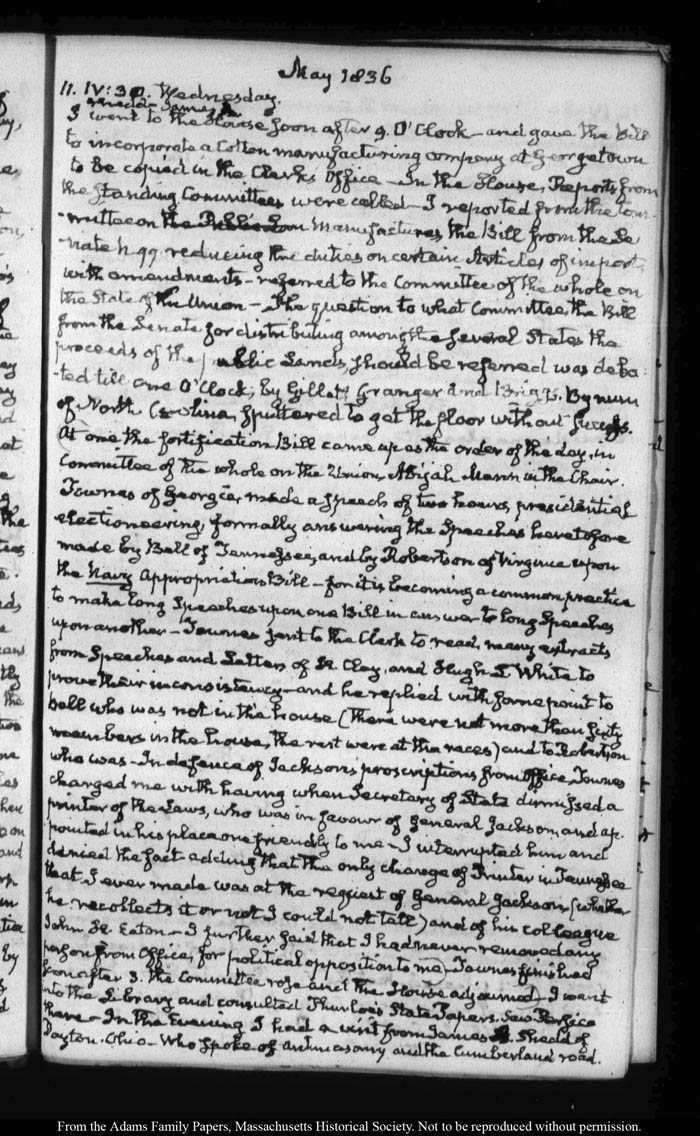 May 1836
11. IV:30. Wednesday.
Shedd James
I went to the House soon after 9. O'Clock – and gave the Bill
to incorporate a Cotton manufacturing company at Georgetown
to be copied in the Clerk's Office – In the House, Reports from
the Standing Committees were called – I reported from the Com-
mittee on Manufactures, the Bill from the Se
nate N. 99 reducing the duties on certain Articles of import,
with amendments – referred to the Committee of the whole on
the State of the Union – The question to what Committee the Bill
from the Senate for distributing among the several States the
proceeds of the public Lands, should be referred was deba
ted till one O'Clock, by Gillet, Granger and Briggs. Bynum
of North Carolina, sputtered to get the floor without success.
At one the fortification Bill came up as the order of the day, in
Committee of the whole on the Union Abijah Mann in the Chair.
Townes of Georgia, made a speech of two hours, presidential
electioneering, formally answering the Speeches heretofore
made by Bell of Tennessee, and by Robertson of Virginia upon
the Navy Appropriation Bill – for it is becoming a common practice
to make long Speeches upon one Bill in answer to long Speeches
upon another – Townes sent to the Clerk to read, many extracts
from Speeches and Letters of H. Clay, and Hugh L. White to
prove their inconsistency – and he replied with some point to
Bell who was not in the house (There were not more than sixty
members in the house, the rest were at the races) and to Robertson
who was – In defence of Jackson's proscriptions from Office, Townes
charged me with having when Secretary of State dismissed a
printer of the Laws, who was in favour of General Jackson, and ap-
pointed in his place one friendly to me – I interrupted him and
denied the fact – adding that the only change of Printer in Tennessee
that I ever made was at the request of General Jackson (whether
he recollects it or not I could not tell) and of his colleague
John H. Eaton – I further said that I had never removed any
person from Office, for political opposition to me) Townes finished
soon after 3. the Committee rose and the House adjourned – I went
into the Library and consulted Thurloe's State Papers.
there – In the Evening I had a visit from James Shedd of
Dayton. Ohio – who spoke of antimasonry and the Cumberland road.
From the Adams Family Papers, Massachusetts Historical Society. Not to be reproduced without permission.